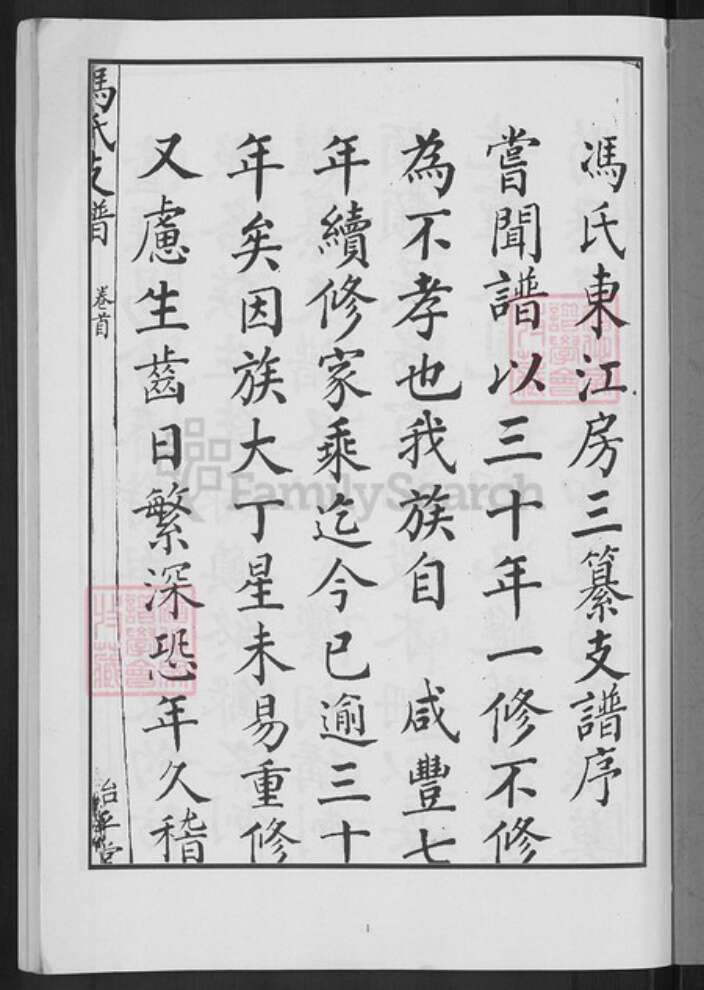 馮氏東江房三纂支譜序
嘗聞譜以三十年一修不修
為不孝也我族自　咸豐七
年續修家乘迄今已逾三十
年矣因族大丁星未易重修
又慮生齒日繁深恐年久稽
馮氏支譜
卷首
治平堂
FamilySearch
1